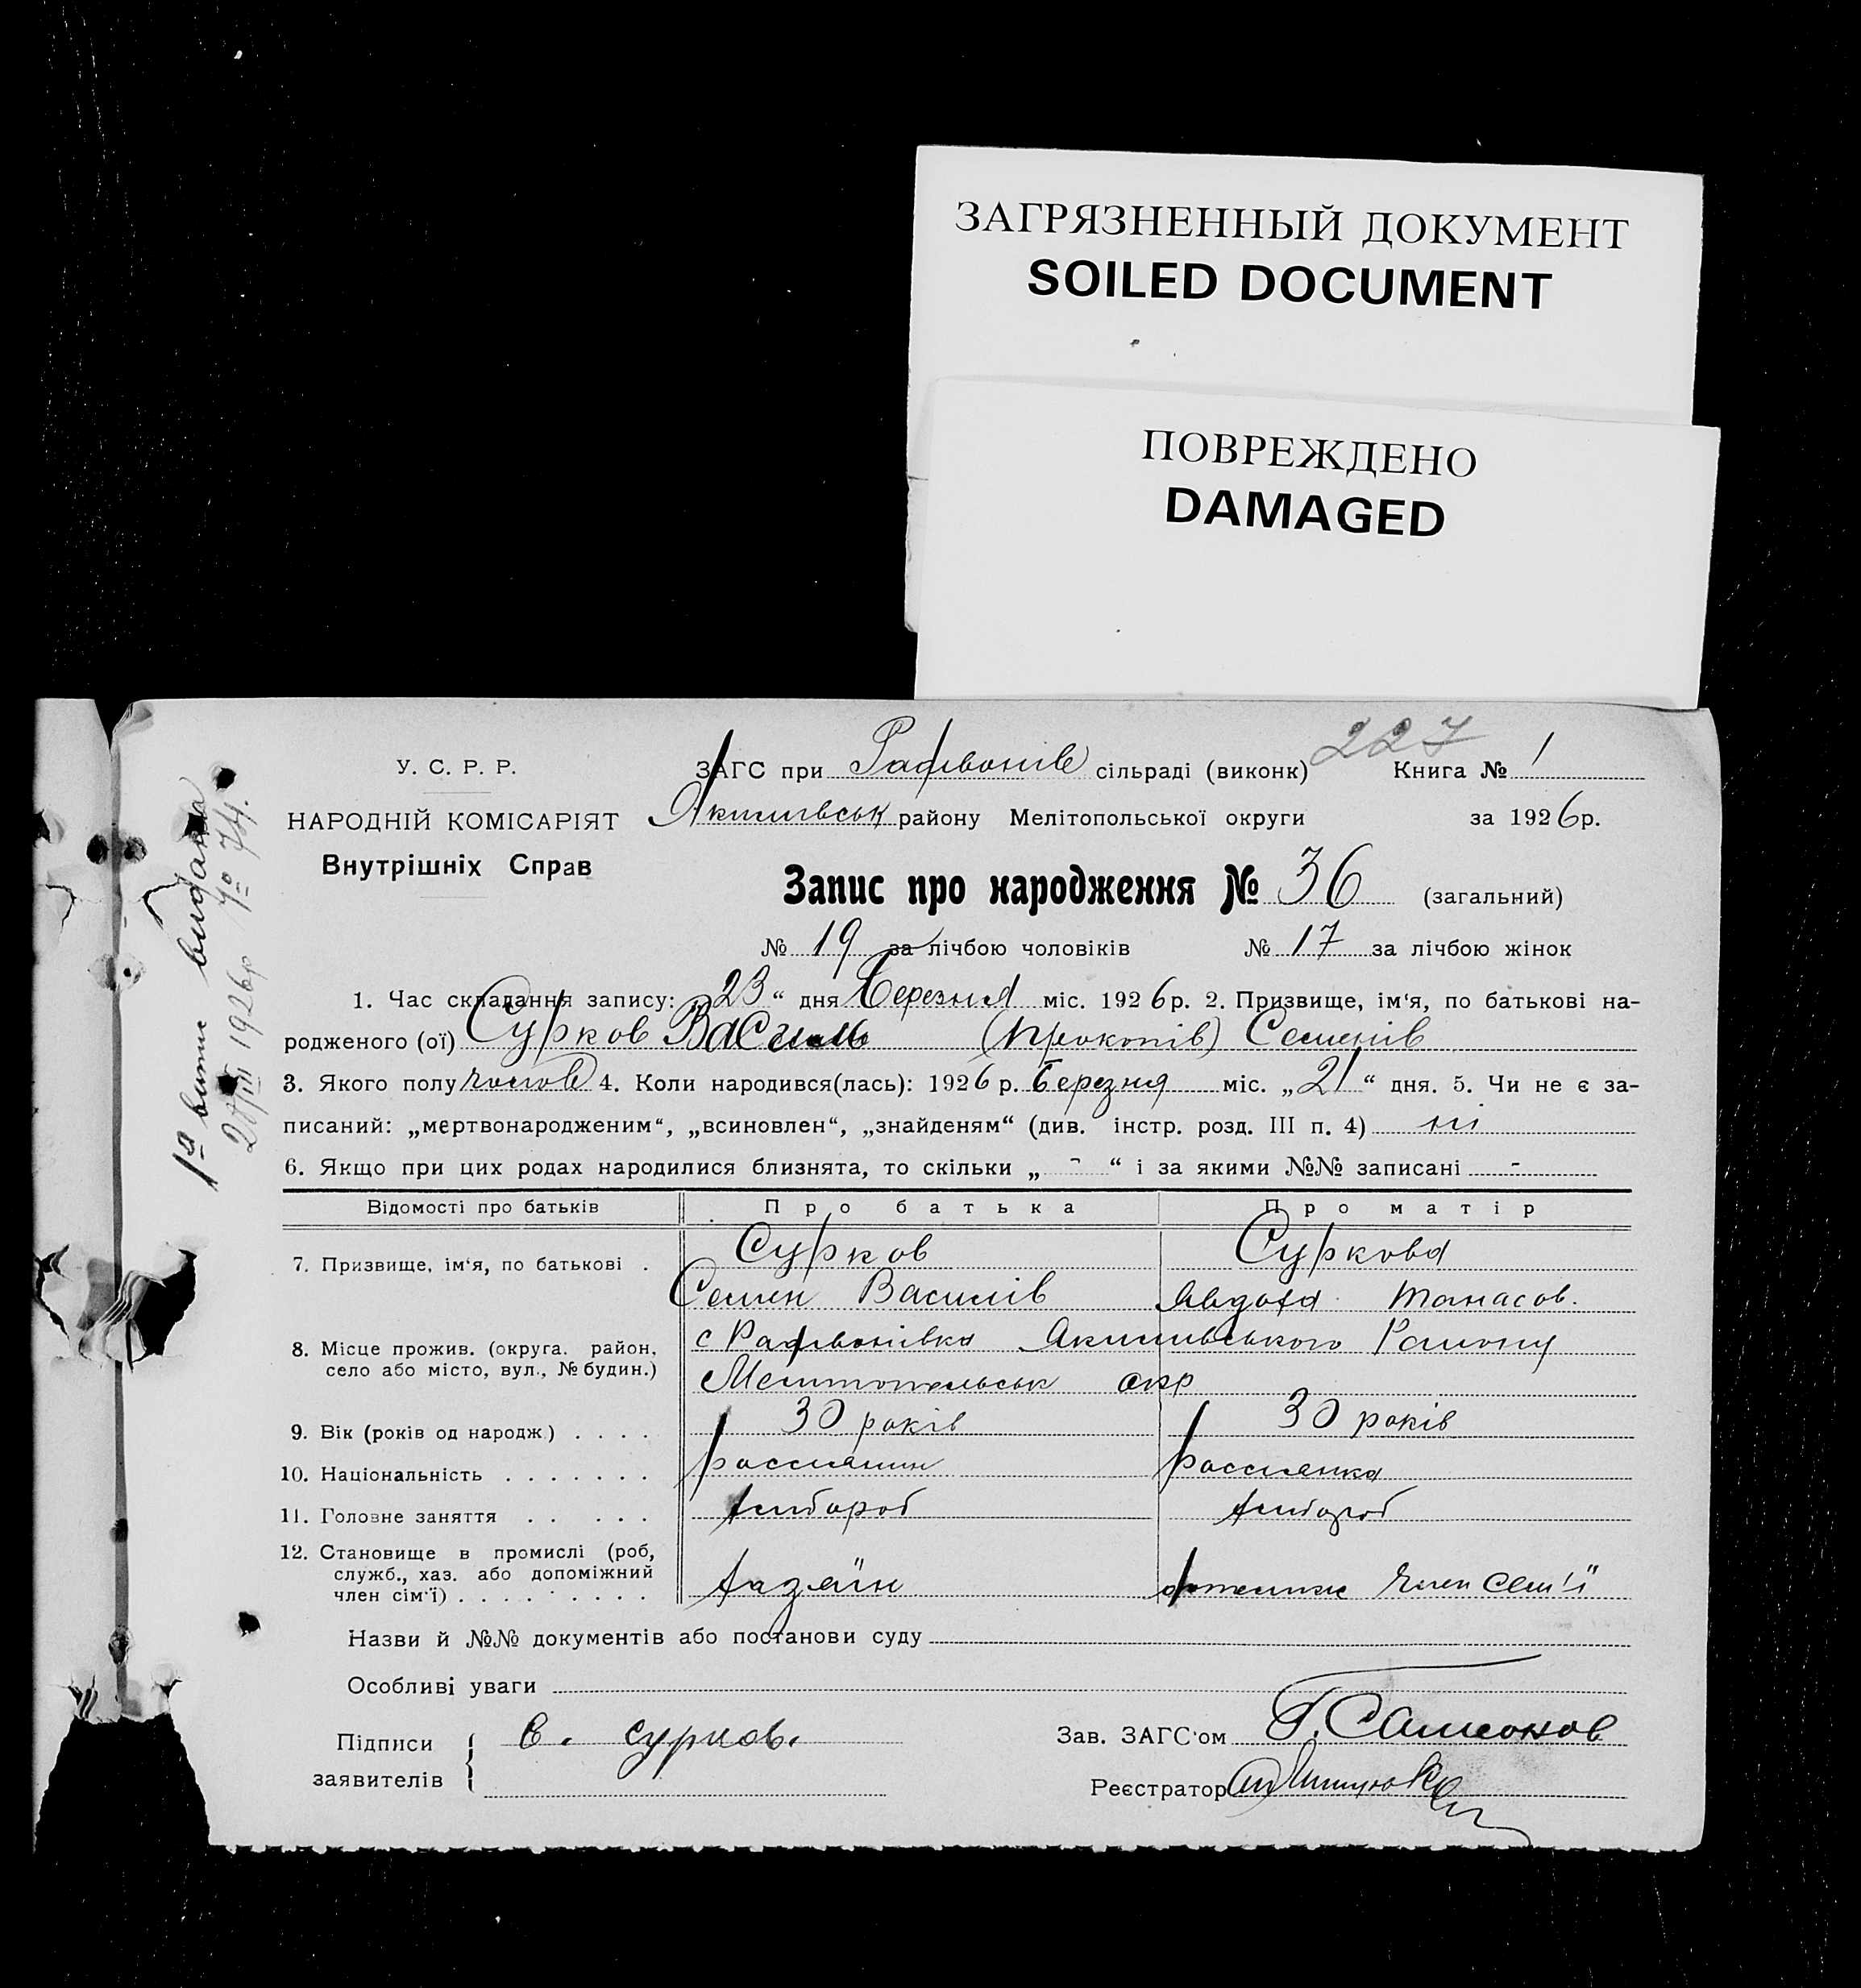 ЗАГРЯЗНЕННЫЙ ДОКУМЕНТ
SOILED DOCUMENT
ПОВРЕЖДЕНО
DAMAGED
227
У. С. Р. Р.
ЗАГС при сільраді (виконк) Книга № 1
НАРОДНІЙ КОМІСАРІЯТ
Якимівськ району Мелітопольської округи за 1926 р.
Внутрішніх Справ
Запис про народження № 36 (загальний)
№ 19 за лічбою чоловіків № 17 за лічбою жінок
1. Час складання запису: „23“ дня Березня міс. 1926 р. 2. Призвище, ім‘я, по батькові на-
родженого (ої) Сурков Василь (Прокопів) Семенів
3. Якого полу чолов 4. Коли народився(лась): 1926 р. Березня міс. „21“ дня. 5. Чи не є за-
писаний: „мертвонародженим“, „всиновлен“, „знайденям“ (див. інстр. розд. III п. 4) ні
6. Якщо при цих родах народилися близнята, то скільки „ - “ і за якими №№ записані -
Відомості про батьків Про батька Про матір
7. Призвище, ім‘я, по батькові . Сурков Суркова
Семен Василів Авдотя Танасов.
8. Місце прожив. (округа, район, село або місто, вул., № будин.) с Якимивського Району
Мелитопольськ окр
9. Вік (років од народж.) . . . . 30 років 30 років
10. Національність . . . . . . . россиянин россиянка
11. Головне заняття . . . . . хлибороб хлибороб
12. Становище в промислі (роб,
служб., хаз. або допоміжний
член сім‘ї) . . . . . . . . . хазяїн член сем'ї
Назви й №№ документів або постанови суду
Особливі уваги
Підписи С. Сурков. Зав. ЗАГС‘ом Г. Самсонов
заявителів Реєстратор
1а витис видана
1926р № 74.